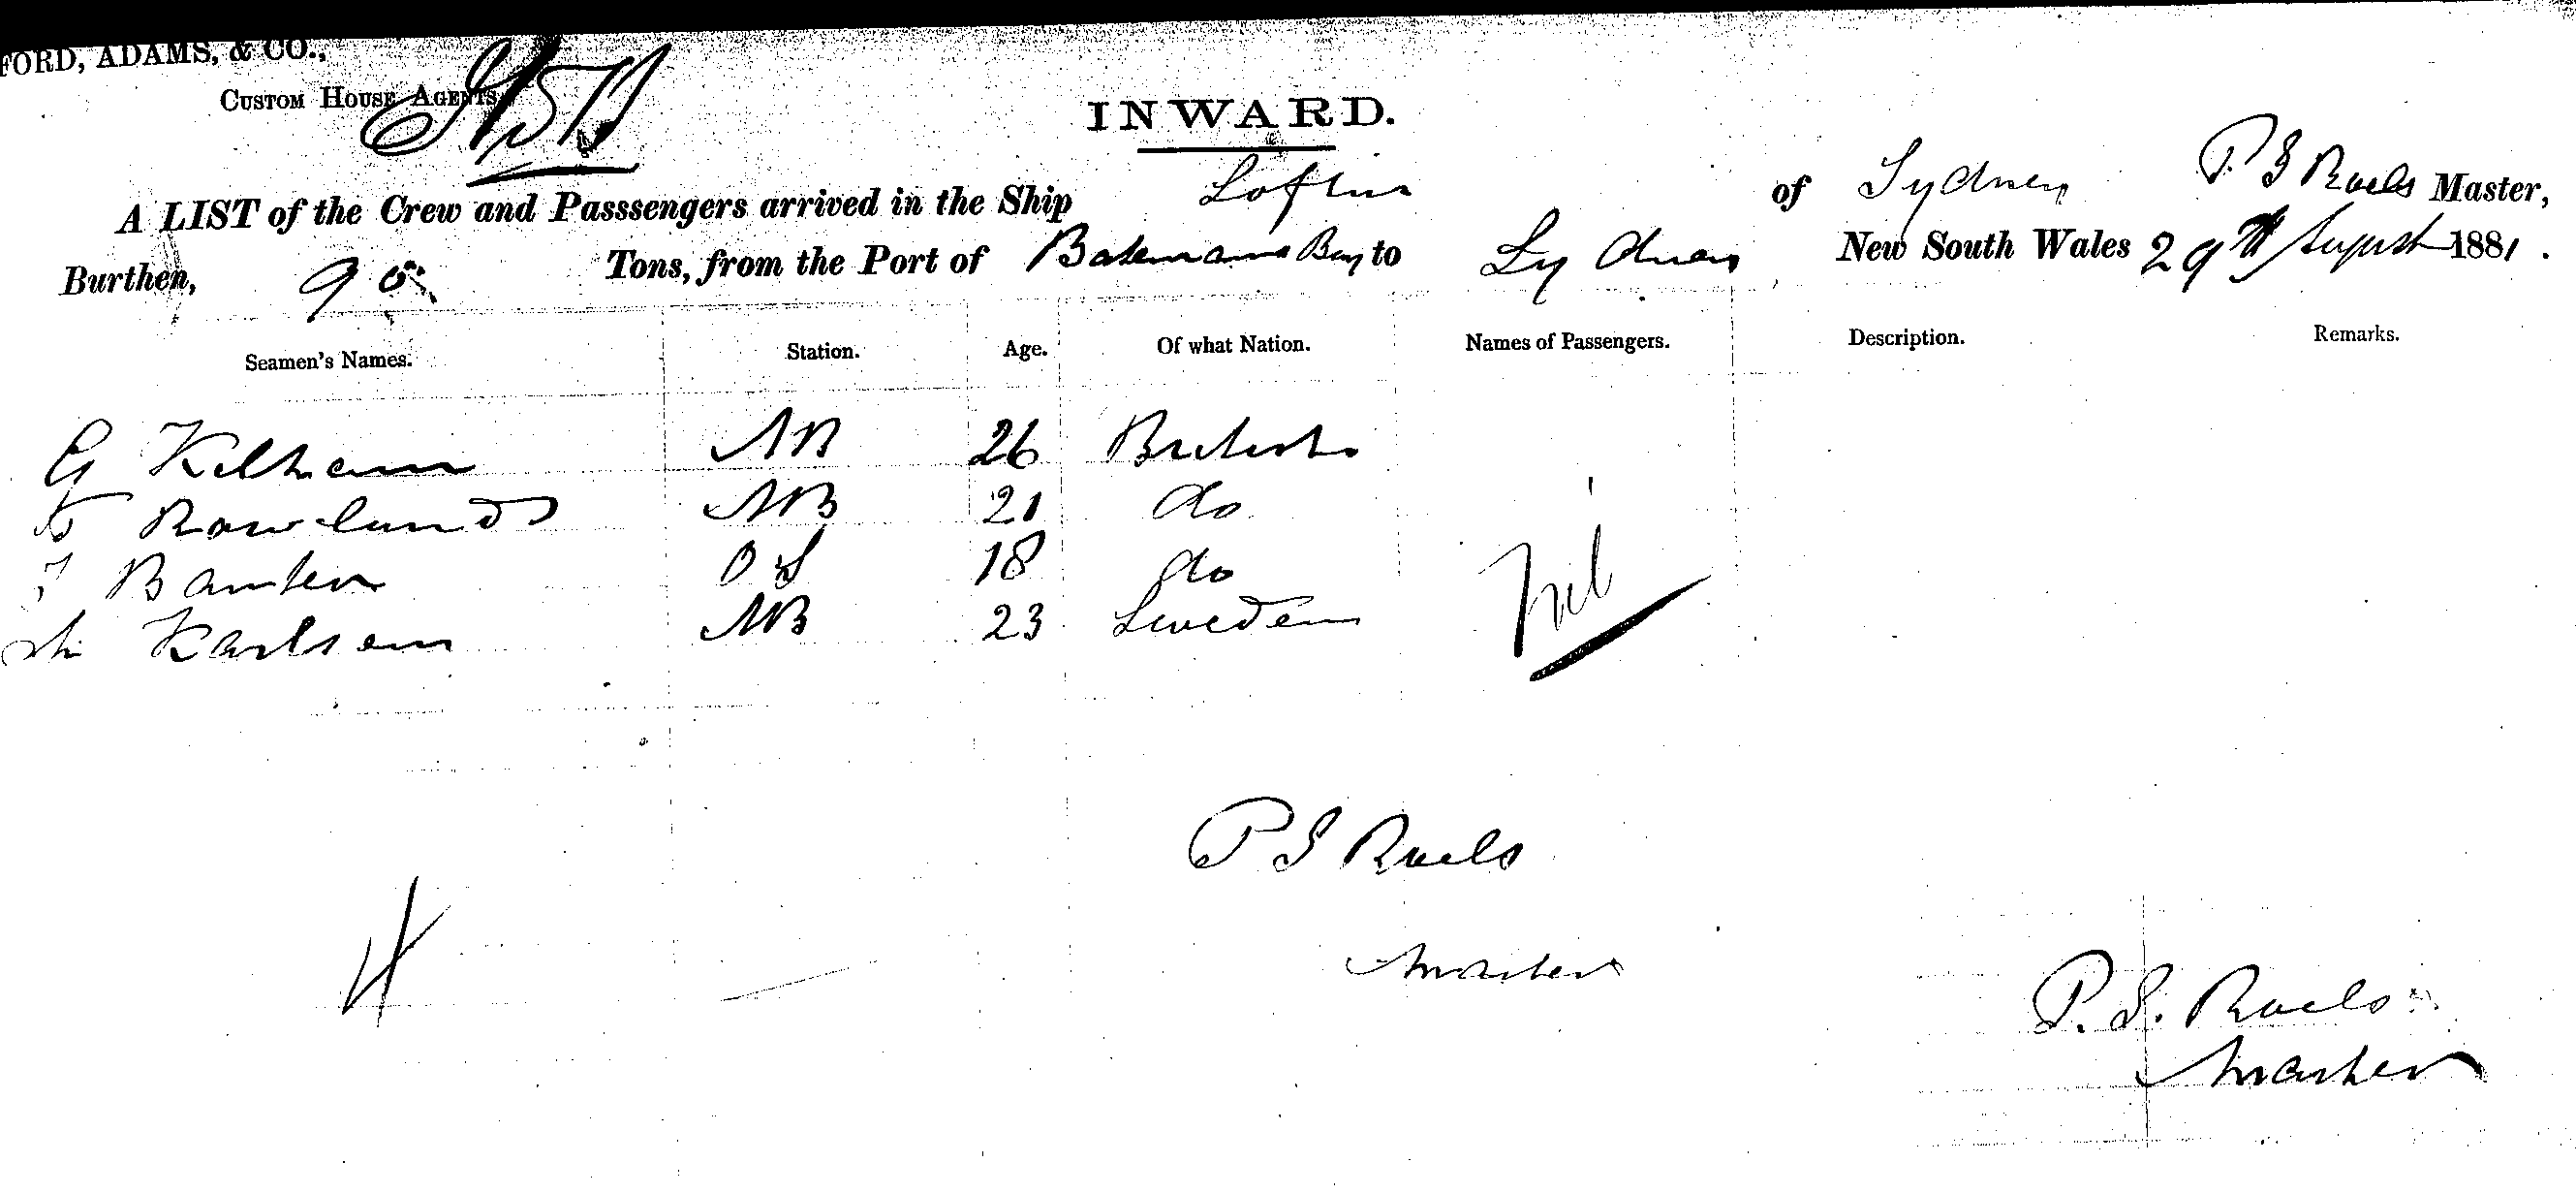 FORD, ADAMS, & CO.,
CUSTOM HOUSE AGENTS
INWARD.
A LIST of the Crew and Passsengers arrived in the Ship Loftus of Sydney P S Roels Master,
Burthen, 95 Tons, from the Port of Batemans Bay to Sydney New South Wales 29th August 1881.
Seamen's Names. Station. Age. Of what Nation. Names of Passengers. Description. Remarks.
G Kelham AB 26 British
Rowlands AB 21 do
Banker OS 18 do nil
Karlsen AB 23 Sweden
P S Roels
Master
P. S. Roels
Master